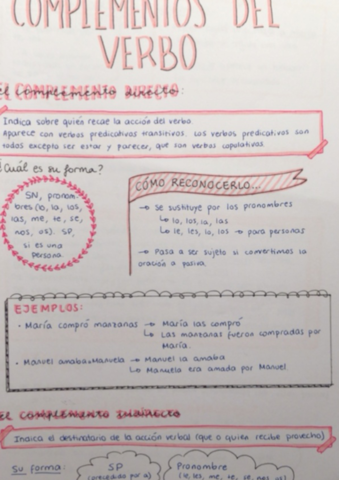 COMPLEMENTOS DEL
VERBO
el COMPLEMENTO DIRECTO:
Indica sobre quién recae la acción del verbo.
Aparece con verbos predicativos transitivos. Los verbos predicativos son
todos excepto ser estar y parecer, que son verbos copulativos.
¿Cuál es su forma?
SN, pronom-
bres (lo, la, los,
las, me, te, se,
nos, os). SP,
si es una
persona.
CÓMO RECONOCERLO...
→ Se sustituye por los pronombres
↳ lo, los, la, las
↳ le, les, lo, los → para personas
→ Pasa a ser sujeto si convertimos la
oración a pasiva.
EJEMPLOS:
· María compró manzanas → María las compró
↳ Las manzanas fueron compradas por
María.
· Manuel amaba a Manuela → Manuel la amaba
↳ Manuela era amada por Manuel
el COMPLEMENTO INDIRECTO
Indica el destinatario de la acción verbal (que o quien recibe provecho)
Su forma:
SP
(precedido por a)
Pronombre
(le, les, me, te, se, nos, os)